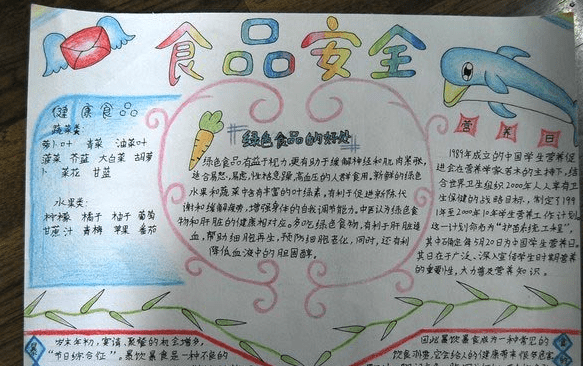 食品安全
健康食品
蔬菜类:
萝卜叶 青菜 油菜叶
菠菜 芥蓝 大白菜 胡萝
卜 菜花 甘蓝
水果类:
柠檬 橘子 柚子 葡萄
甘蔗汁 青梅 苹果 番茄
绿色食品的好处
绿色食品有益于视力,更有助于缓解神经和肌肉紧张,
适合易怒,易虑,性格急躁,高血压的人群食用,新鲜的绿色
水果和蔬菜中含有丰富的叶绿素,有利于促进新陈代
谢和缓解疲劳,增强身体的自我调节能力,中医认为绿色食
物和肝脏的健康相对应,多吃绿色食物,有利于肝脏造
血,帮助细胞再生,预防细胞老化,同时,还有利
降低血液中的胆固醇。
营养日
1989年成立的中国学生营养促
进会在营养学家 的主持下,结
合世界卫生组织2000年人人享有卫
生保健的战略目标,制定了199
1年至2000年10年学生营养工作计划
这一计划命名为“护苗系统工程”,
其中确定每5月20日为中国学生营养日。
其目在于广泛、深入宣传学生时期营养
的重要性,大力普及营养知识。
岁末年初,宴请,聚餐的机会增多,
“节日综合症”。暴饮暴食是一种不良的
因此暴饮暴食成为一种常见的
饮食 ,它会给人的健康带来很多危害